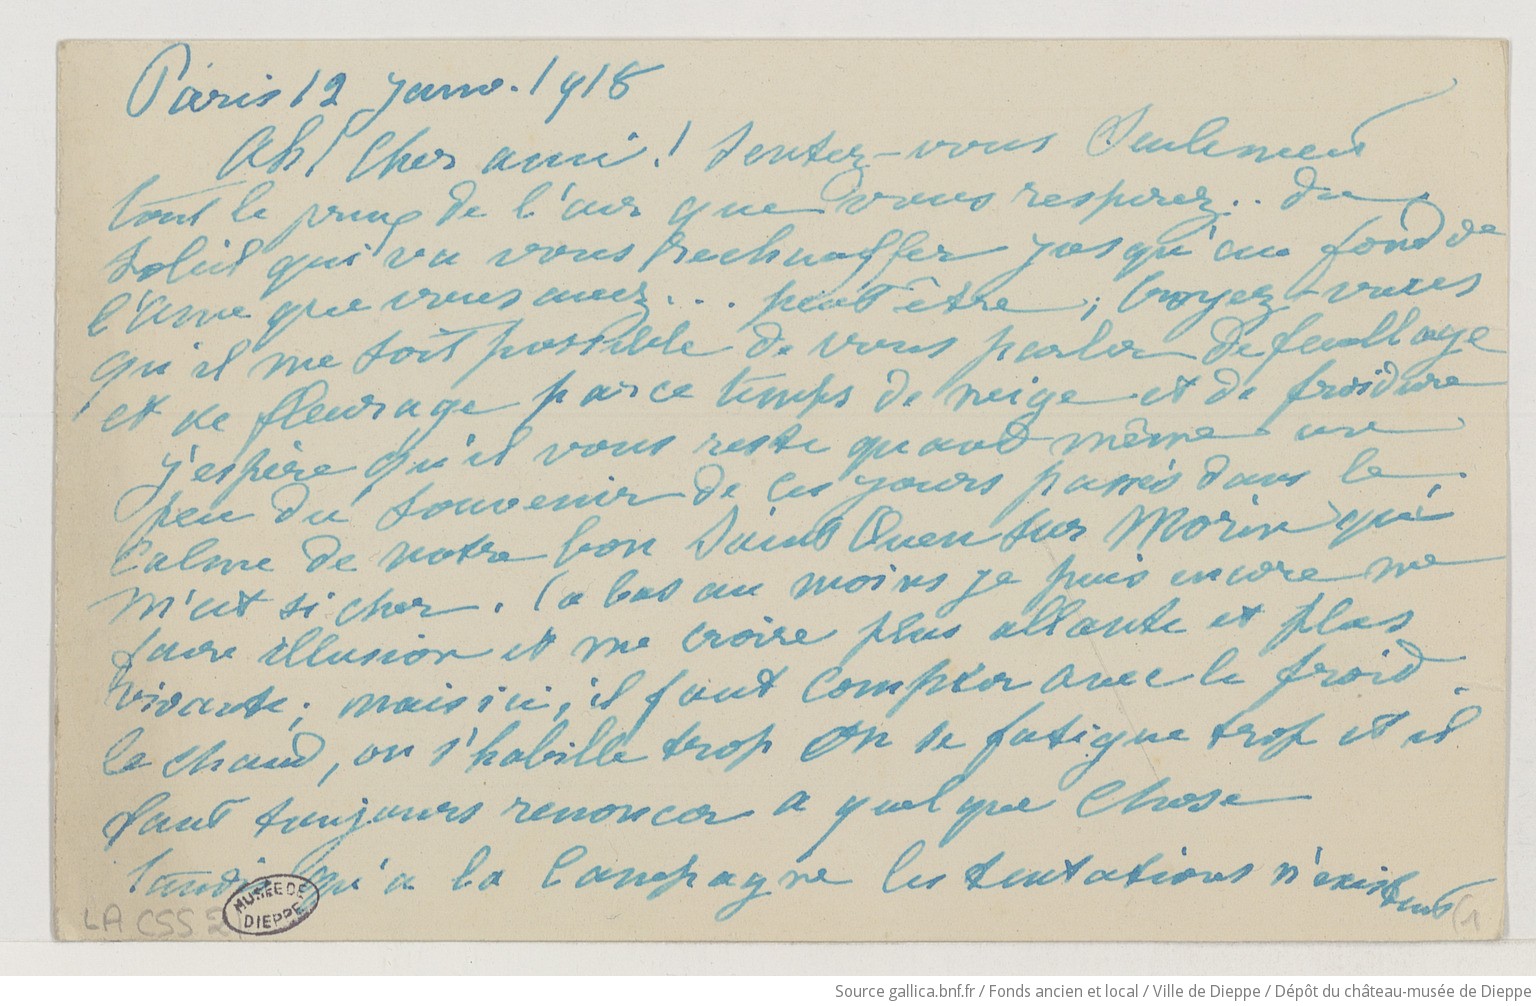 Paris 12 janv. 1918
Ah! Cher ami! Sentez-vous Seulement
tout le prix de l'air que vous respirez.. du
soleil qui va vous rechauffer jusqu'au fond de
l'âme que vous avez... peut être, Croyez-vous
qu'il me soit possible de vous parler de feuillage
et de fleurage par ce temps de neige et de froidure
j'espère qu'il vous reste quand même un
peu du souvenir de ces jours passés dans le
Calme de notre bon Saint Ouen sur Morin qui
m'est si cher. La bas au moins je puis encore me
faire illusion et me croire plus allante et plus
vivante; mais ici, il faut compter avec le froid.
le chaud, on s'habille trop on se fatigue trop et il
faut toujours renoncer a quelque Chose
tandis qu'a la Campagne les tentations n'existent
LA CSS 2
MUSÉE DE DIEPPE
(1
Source gallica.bnf.fr / Fonds ancien et local / Ville de Dieppe / Dépôt du château-musée de Dieppe